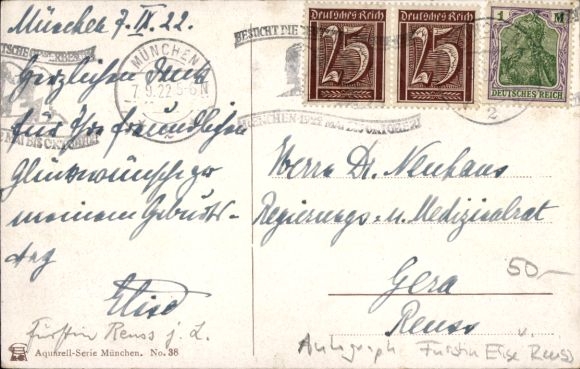 München 7. IX. 22.
Herzlichen Dank
für Ihre freundlichen
Glückwünsche zu
meinem Geburts-
tag
Elise
Fürstin Reuss j. L.
Aquarell-Serie München. No. 38
MÜNCHEN
7.9.22 5-6 N
BESUCHT DIE
MÜNCHEN 1922 MAI BIS OKTOBER
MAI BIS OKTOBER
Deutsches Reich
25
Deutsches Reich
25
1 M
DEUTSCHES REICH
2
Herrn Dr. Neuhaus
Regierungs- u. Medizinalrat
Gera
Reuss
50–
Autograph Fürstin Elise Reuss